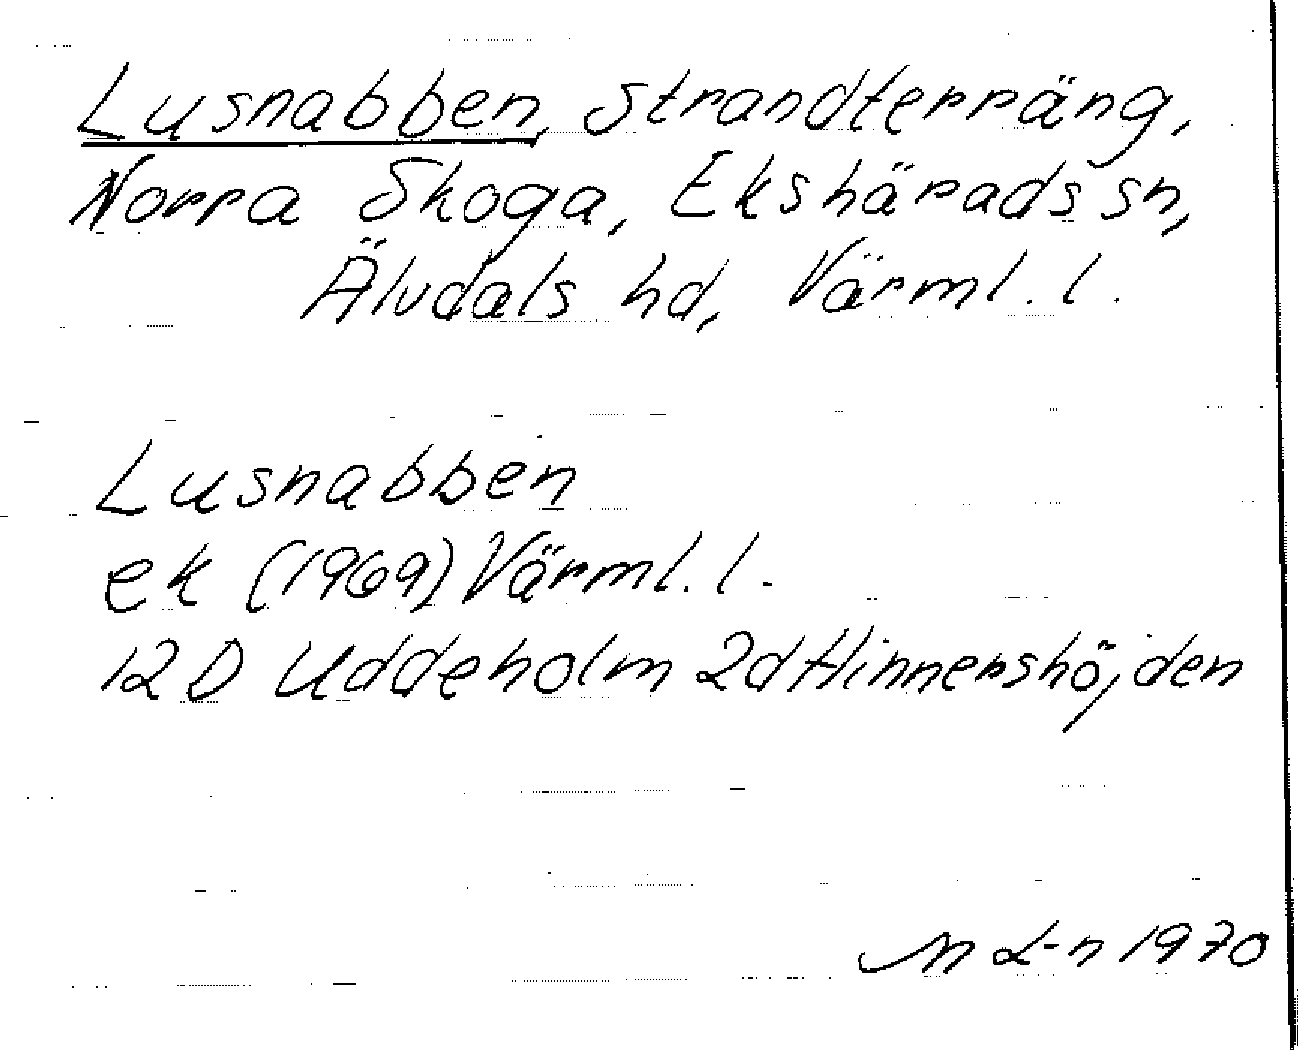 Lusnabben, Strandterräng,
Norra Skoga, Ekshärads sn,
Älvdals hd, Värml. l.
Lusnabben
ek (1969) Värml. l.
12 D Uddeholm 2d Hinnershöjden
M L-n 1970